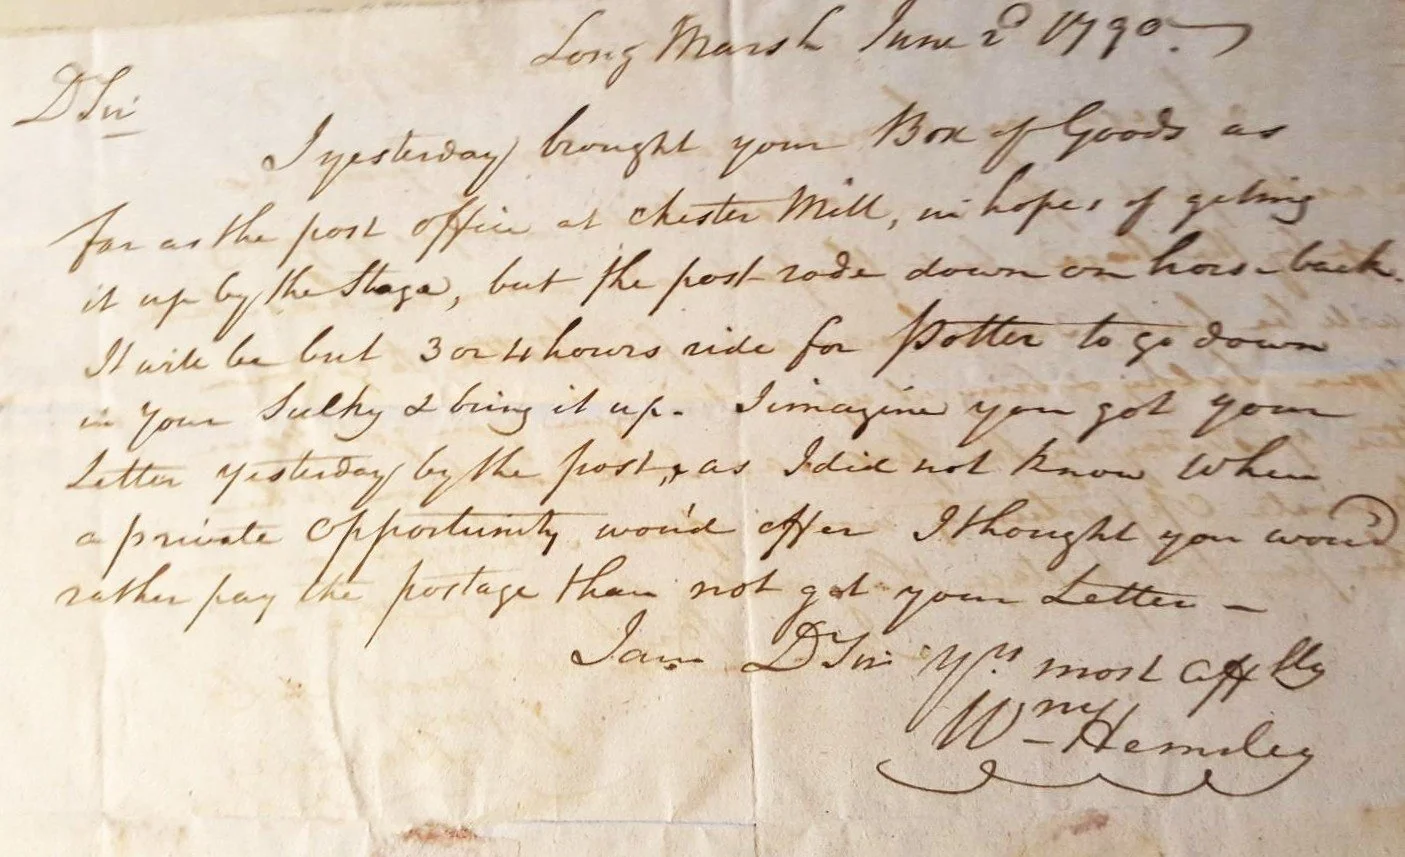 Long Marsh June 2d 1790.
D Sir
I yesterday brought your Box of Goods as
far as the post office at Chester Mill, in hopes of geting
it up by the Stage, but the post rode down on horse back.
It will be but 3 or 4 hours ride for Potter to go down
in your Sulky & bring it up. I imagine you got your
Letter yesterday by the post, as I did not know when
a private opportunity wou'd offer I thought you wou'd
rather pay the postage than not get your Letter —
I am D Sir Yrs most affly
Wm Hemsley